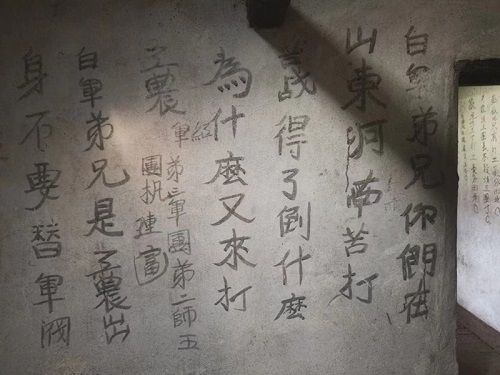 白軍弟兄你們在
山東河南苦打
戰得了倒什麼
為什麼又來打
工農
紅軍弟三軍團弟二師五
團机連富
白軍弟兄是工農出
身不要替軍閥